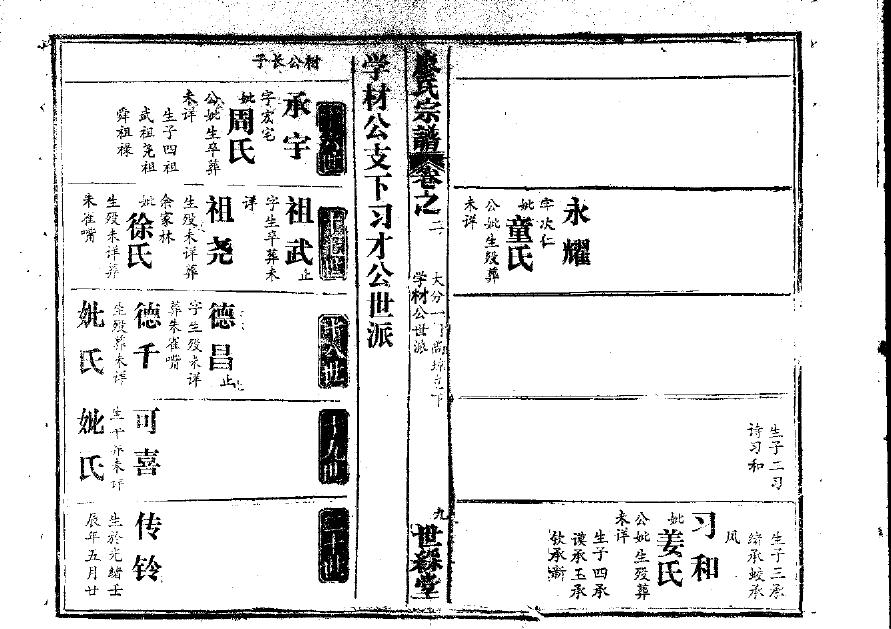 生子二习
诗习和
生子三承
绪承蛟承
凤
永耀
字次仁
妣童氏
公妣生殁葬
未详
习和
妣姜氏
公妣生殁葬
未详
生子四承
谟承玉承
钦承渐
廖氏宗谱
卷之二
学材公世派
九
世䌽堂
学材公支下习才公世派
材公长子
十六世
承宇
字宏宅
妣周氏
公妣生卒葬
未详
生子四祖
武祖尧祖
舜祖禄
十七世
祖武止
字生卒葬未
详
祖尧
生殁未详葬
佘家林
妣徐氏
生殁未详葬
朱雀嘴
十八世
德昌止
字生殁未详
葬朱雀嘴
德千
生殁葬未详
妣氏
十九世
可喜
生
妣氏
二十世
传铃
生於光绪壬
辰年五月廿